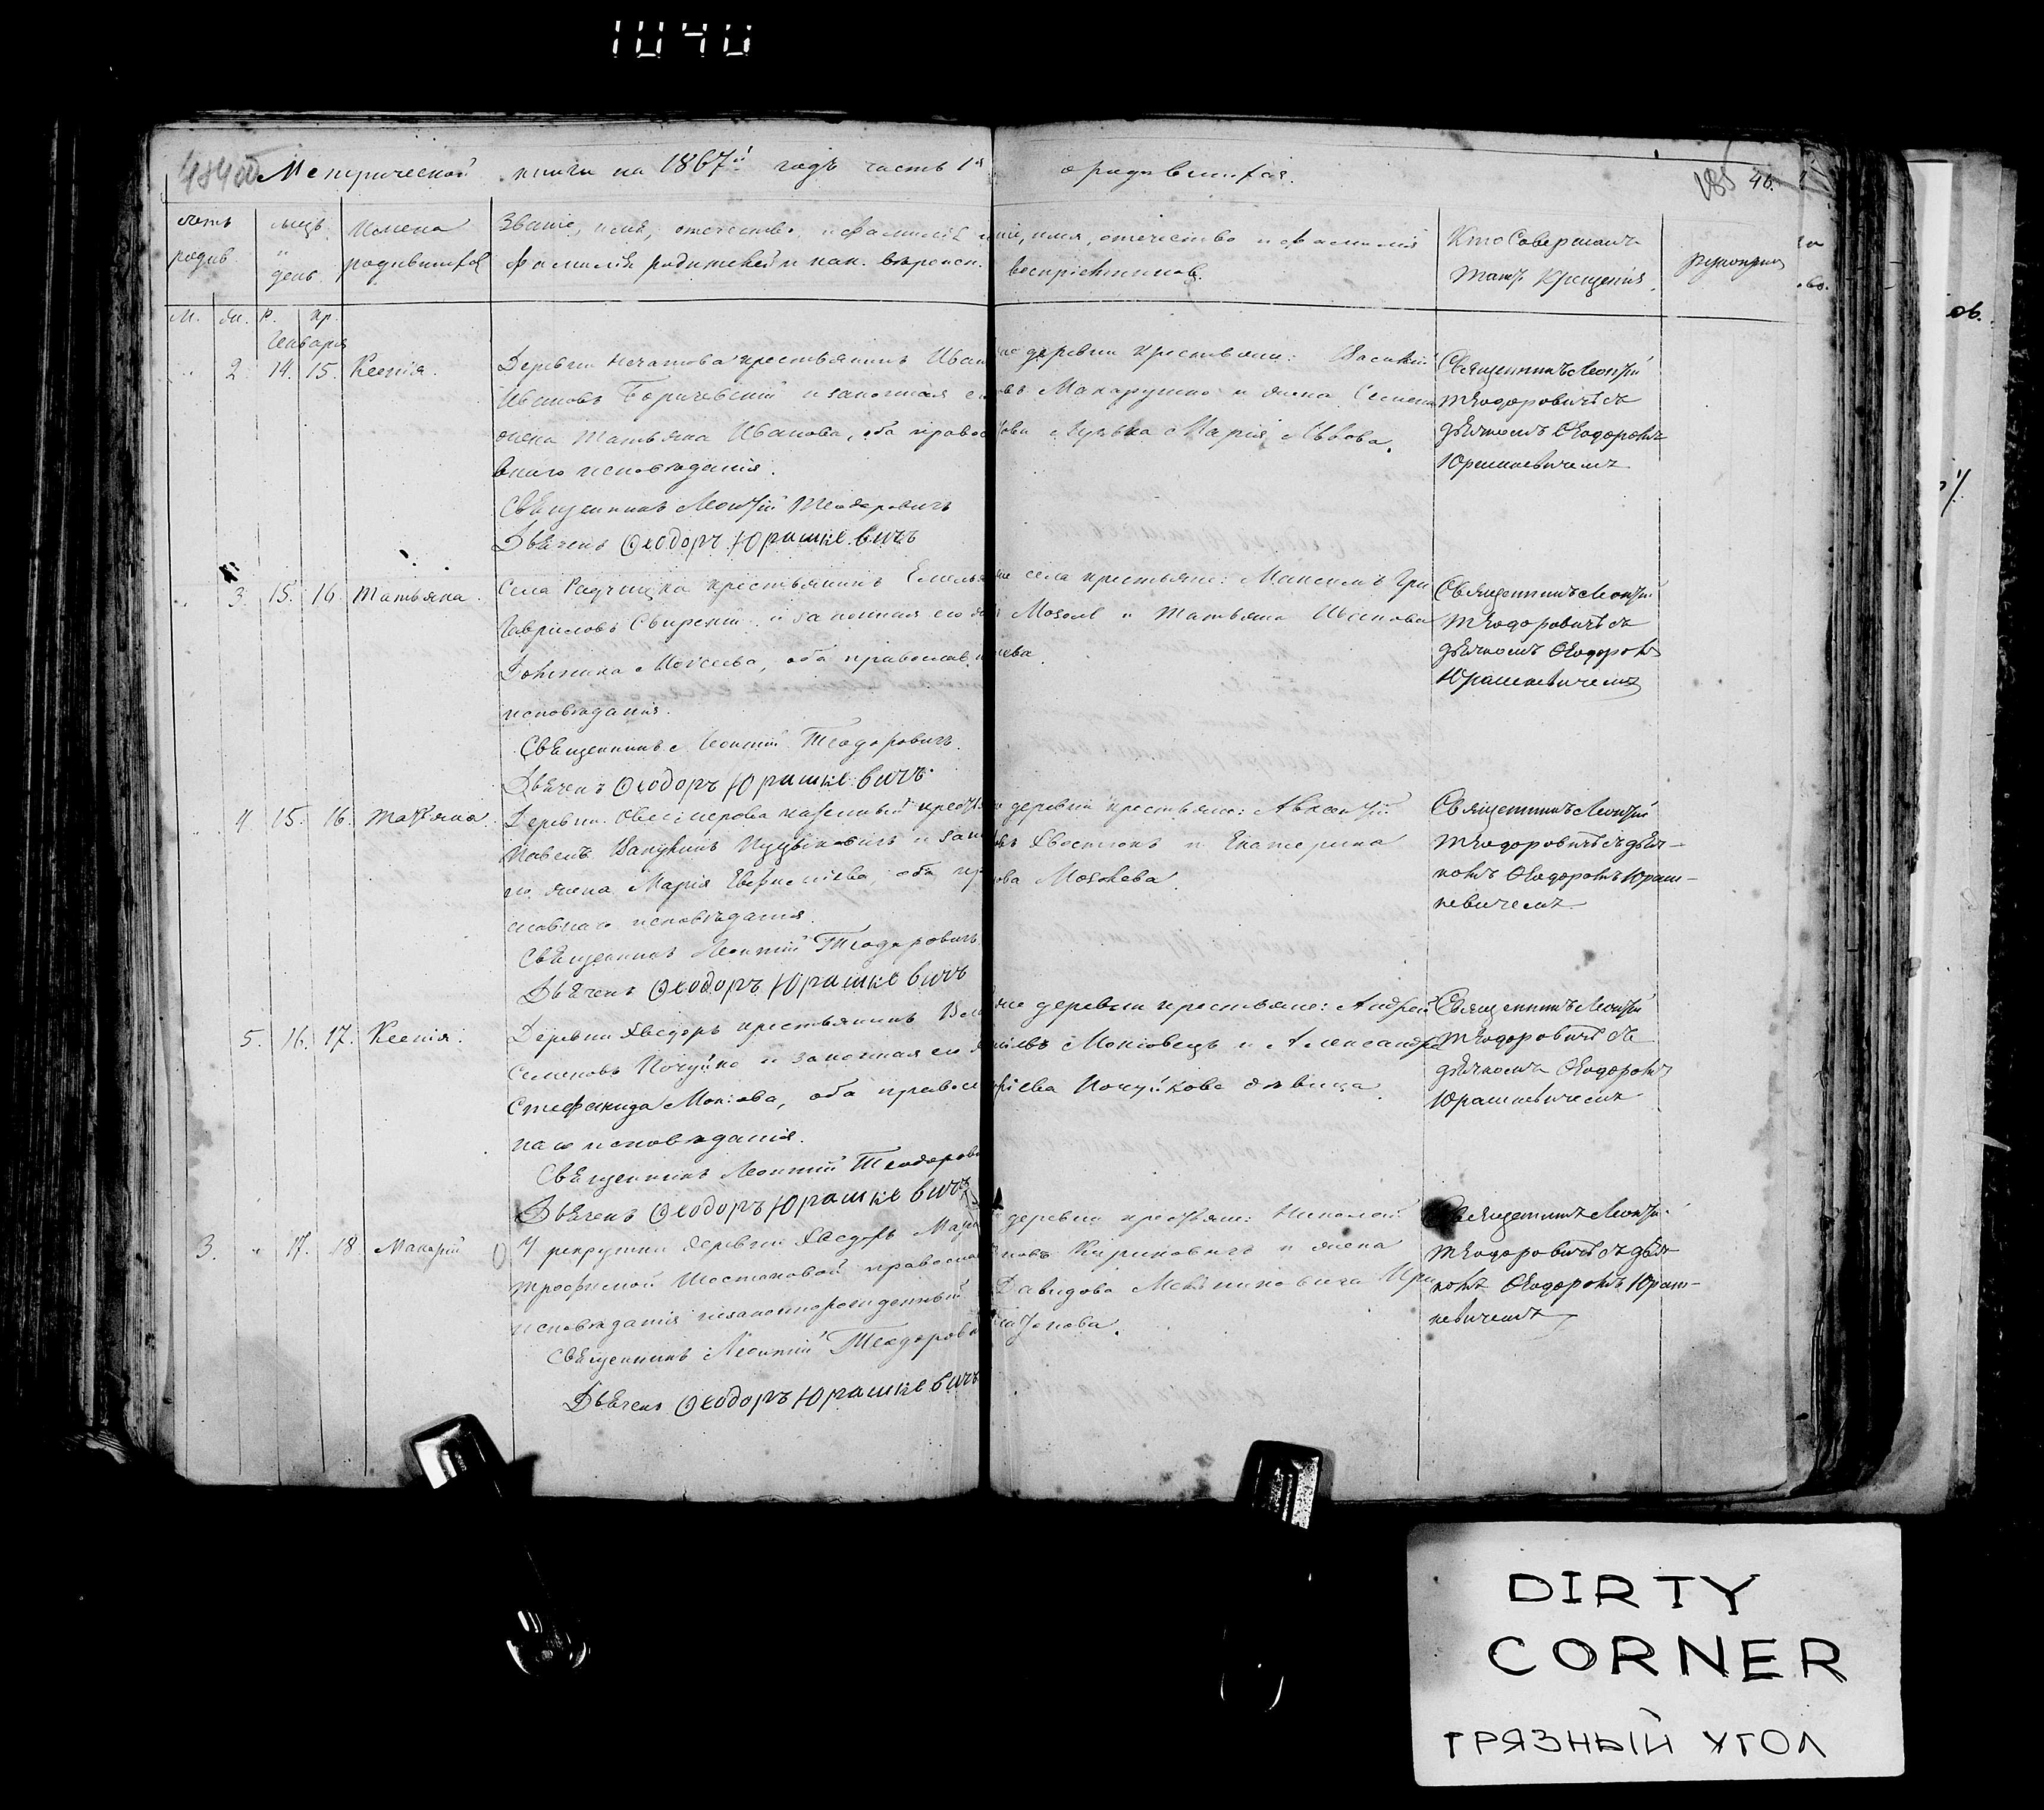 1040
Метрической книги на 1867й годъ часть 1я о родившихся. 185 46.
Счетъ родив.
мѣсцъ и день
Имена родившихся
Званіе, имя, отечество и фамилія
фамилія родителей и как. вѣроисп.
ніе, имя, отечество и фамилія
воспріемниковъ.
Кто совершалъ
таин. крещенія.
рукоприк
М. Жн. Р. Кр.
Января
2. 14. 15. Ксенія.
Деревни крестьянинъ Иван
Ивановъ и законная ег
жена Татьяна Иванова, оба правос
внаго исповѣданія.
Священникъ Леонтій Теодоровичъ
Дьячекъ Ѳеодоръ Юрашкевичъ
же деревни крестьяне: Василій
овъ Макарушко и жена Семена
Марія Львова.
Священникъ Леонтій
Теодоровичъ съ
дьячкомъ Ѳеодоромъ
Юрашкевичемъ
3. 15. 16. Татьяна.
Села Радчицка крестьянинъ Емелья
Гавриловъ и законная его же
Домника Моисеева, оба православн
исповѣданія.
Священникъ Леонтій Теодоровичъ
Дьячекъ Ѳеодоръ Юрашкевичъ
же села крестьяне: Максимъ Гри
Мозоль и Татьяна Иванова
Священникъ Леонтій
Теодоровичъ съ
дьячкомъ Ѳеодоромъ
Юрашкевичемъ
4 15. 16. Татьяна.
Деревни казенный крестья
Павелъ и зак
его жена Марія оба пр
славнаго исповѣданія.
Священникъ Леонтій Теодоровичъ
Дьячекъ Ѳеодоръ Юрашкевичъ
деревни крестьяне: Авксентій
овъ Хвостюкъ и Екатерина
ова Мозолева.
Священникъ Леонтій
Теодоровичъ съ дьяч-
комъ Ѳеодоромъ Юраш-
кевичемъ
5. 16. 17. Ксенія.
Деревни Хведоръ крестьянинъ
Семеновъ Почуйко и законная его ж
Стефанида оба правосл
наго исповѣданія.
Священникъ Леонтій Теодорови
Дьячекъ Ѳеодоръ Юрашкевичъ
же деревни крестьяне: Андрей
и Александра
Почуйкова дѣвица.
Священникъ Леонтій
Теодоровичъ съ
дьячкомъ Ѳеодоромъ
Юрашкевичемъ
3. " 17. 18 Макарій
У рекрутки деревни Хведоръ
Трофимой Шостаковой правосла
исповѣданія незаконнорожденный
Священникъ Леонтій Теодорови
Дьячекъ Ѳеодоръ Юрашкевичъ
деревни крестьяне: Николай
новъ Кириковичъ и жена
Давидова Ири
Священникъ Леонтій
Теодоровичъ съ дьяч
комъ Ѳеодоромъ Юраш-
кевичемъ
DIRTY
CORNER
ГРЯЗНЫЙ УГОЛ